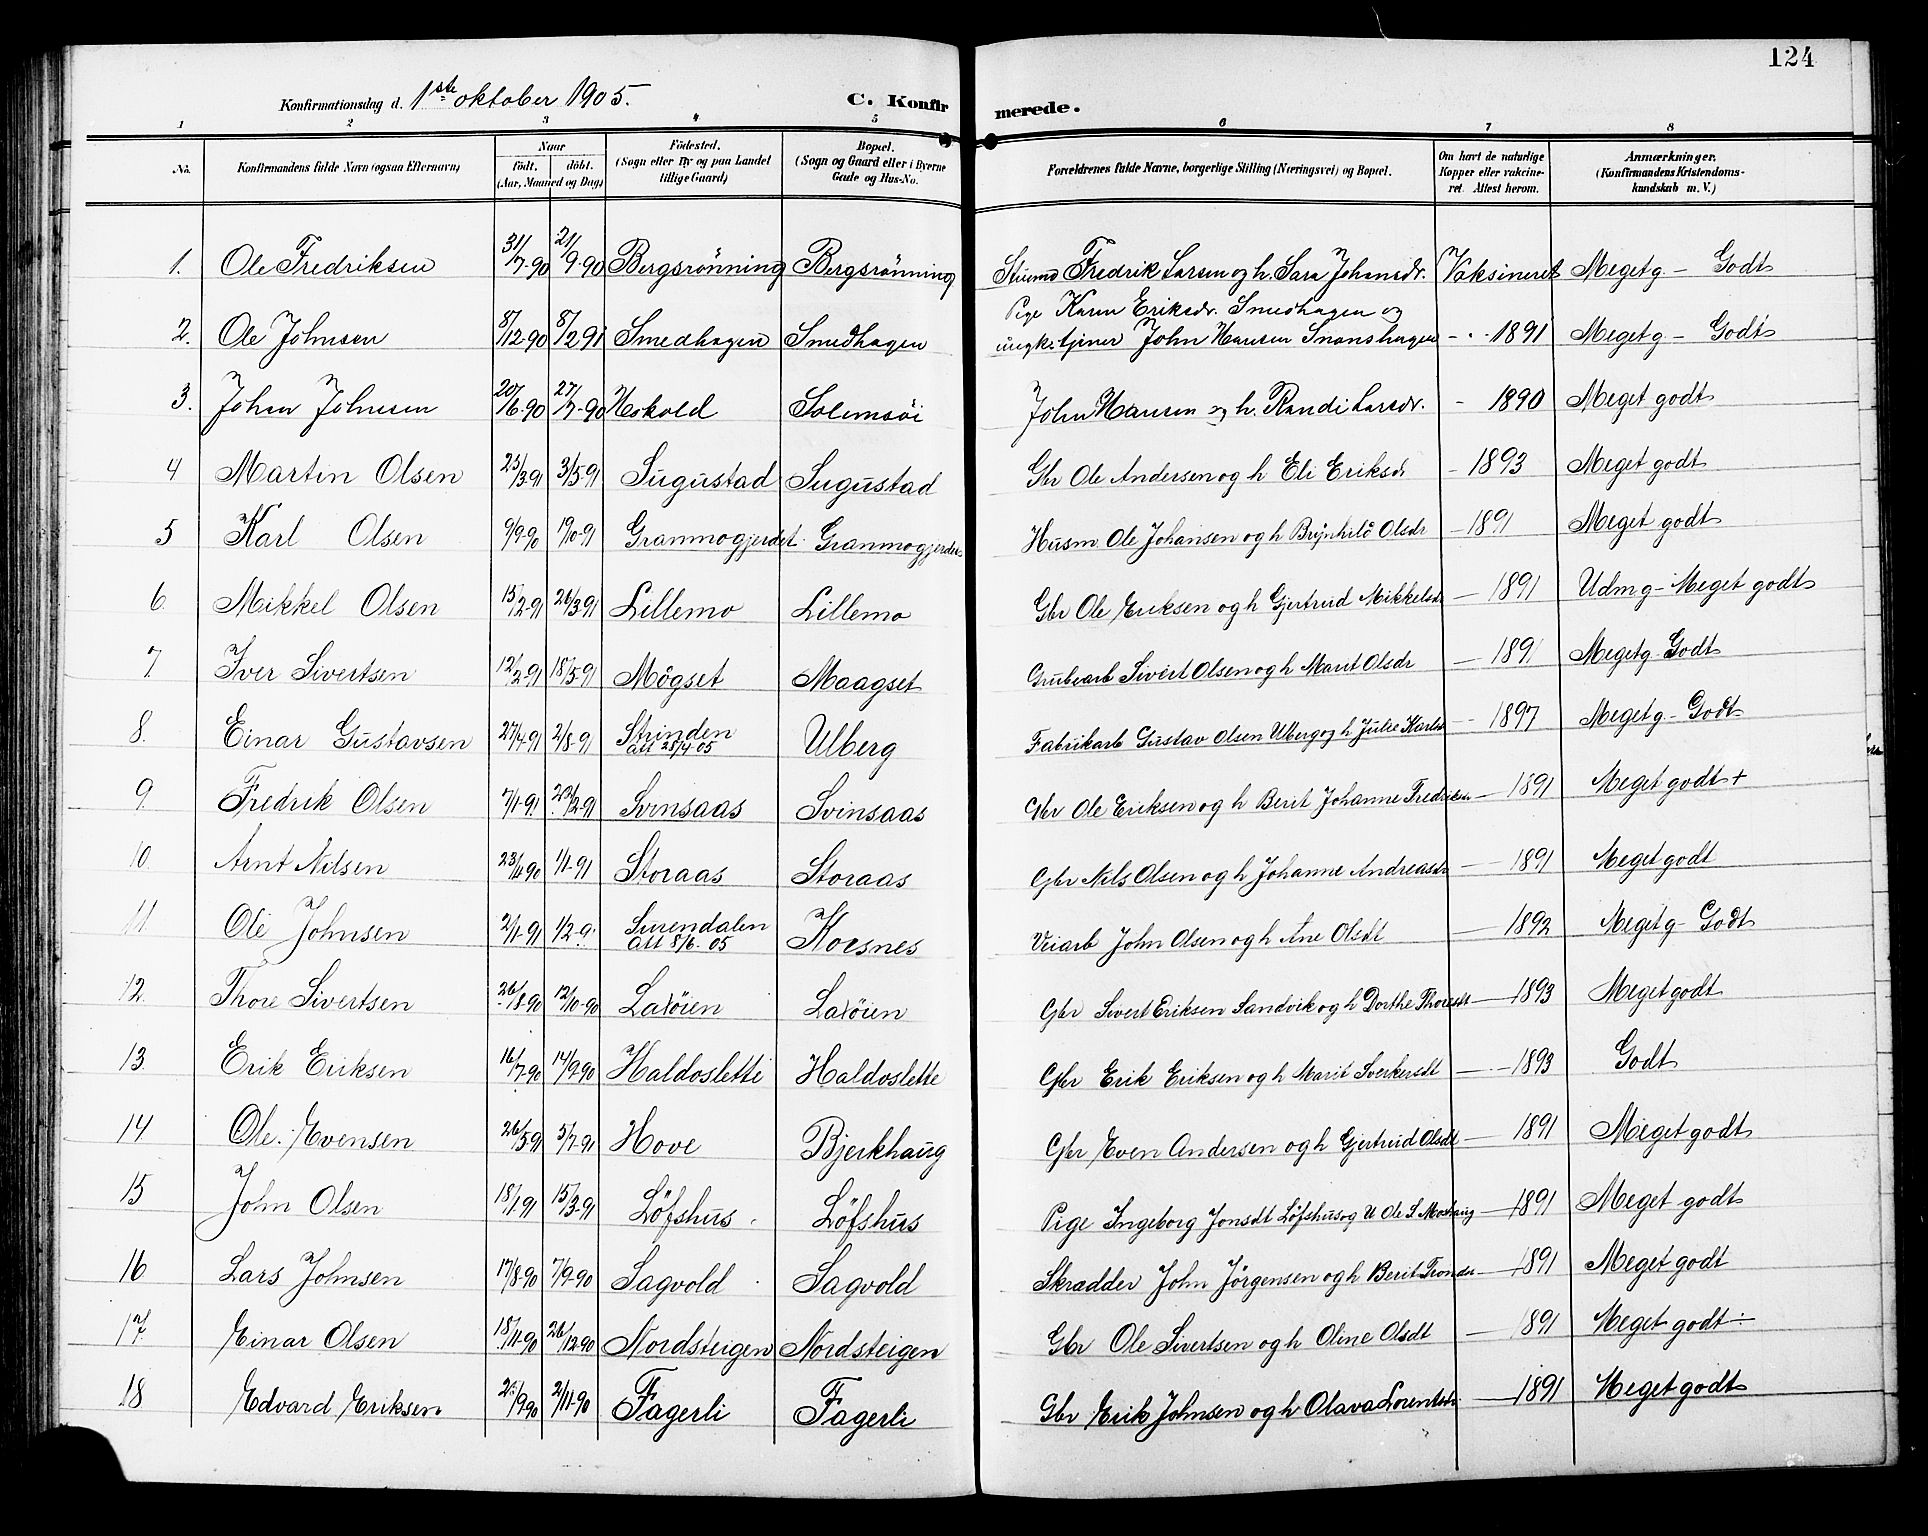 124
Konfirmationsdag d. 1ste oktober 1905. C. Konfirmerede.
1 2 3 4 5 6 7 8
No. Konfirmandens fulde Navn (ogsaa Efternavn) Naar født. døbt. (Aar, Maaned og Dag) Fødested. (Sogn eller By og paa Landet tillige Gaard) Bopæl. (Sogn og Gaard eller i Byerne Gade og Hus-No. Forældrenes fulde Navne, borgerlige Stilling (Næringsvei) og Bopæl. Om havt de naturlige Kopper eller vakcineret. Attest herom. Anmærkninger. (Konfirmandens Kristendomskundskab m. V.)
1. Ole Fredriksen 31/7-90 21/9-90 Bergsrönning Bergsrönning Fredrik Larsen og h. Sara Johansdr. Vaksineret Megetg - Godt
Pige Karen Eriksdr. Smedhagen og
2. Ole Johnsen 8/12-90 8/2 91 Smedhagen Smedhagen ungk. tjener John Hansen - " - 1891 Megetg - Godt
3. John Johnsen 20/6-90 27/7-90 Heskold Solemsöi John Hansen og h. Randi Larsdr. - 1890 Meget godt
4 Martin Olsen 23/3-91 3/5-91 Sugustad Sugustad Gbr Ole Andersen og h Eli Eriksdr - 1893 Meget godt
5 Karl Olsen 9/9-90 19/10-91 Granmogjerdet Granmogjerdet Husm. Ole Johansen og h Brynhild Olsdr - 1891 Meget godt
6. Mikkel Olsen 15/2-91 26/3-91 Lillemo Lillemo Gbr Ole Eriksen og h Gjertrud Mikkelsdr - 1891 Udm g - Meget godt
7. Iver Sivertsen 12/2-91 18/5-91 Mögset Maagset Grubearb Sivert Olsen og h Marit Olsdr - 1891 Megetg - Godt
8. Einar Gustavsen 27/4-91 2/8-91 Strinden Ulberg Fabrikarb Gustav Olsen Ulberg og h Julie Karlsdr - 1897 Megetg - Godt
att 25/4 05
9. Fredrik Olsen 7/1-91 22/2-91 Svinsaas Svinsaas Gbr Ole Eriksen og h Berit Johanne Fredriksen - 1891 Meget godt +
10. Arnt Nilsen 23/4 90 1/1-91 Storaas Storaas Gbr Nils Olsen og h Johanne Andreasdr - 1891 Meget godt
11 Ole Johnsen 2/1-91 1/2-91 Surendalen Korsnes Veiarb John Olsen og h Ane Olsdt - 1892 Megetg - Godt
att 8/6. 05
12. Thore Sivertsen 26/8-90 12/10-90 Laxöien Laxöien Gbr Sivert Eriksen Sandvik og h Dorthe Thoresdt - 1893 Meget godt
13 Erik Eriksen 16/7-90 14/9-90 Haldosletti Haldoslette Gbr Erik Eriksen og h Marit Sverkersdt - 1893 Godt
14 Ole Evensen 26/5-91 5/7-91 Hove Bjerkhaug Gbr Even Andersen og h Gjertrud Olsdt - 1891 Meget godt
15 John Olsen 18/1-91 15/3-91 Löfshus Löfshus Pige Ingeborg Jonsdt Löfshus og U Ole S Moshaug - 1891 Meget godt
16 Lars Johnsen 17/8-90 7/9-90 Sagvold Sagvold Skradder John Jörgensen og h Berit Tronds - 1891 Meget godt
17. Einar Olsen 18/11-90 26/12-90 Nordsteigen Nordsteigen Gbr Ole Sivertsen og h Oline Olsdt - 1891 Meget godt ÷
18 Edvard Eriksen 25/9-90 2/11-90 Fagerli Fagerli Gbr Erik Johnsen og h Olava Lorentsdr - 1891 Meget godt